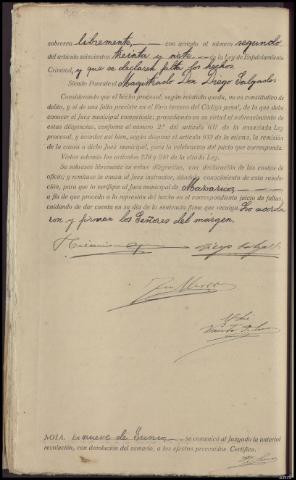 sobresea libremente, con arreglo al número segundo
del artículo seiscientos treinta y siete de la Ley de Enjuiciamiento
Criminal, y que se declaren falta los hechos.
Siendo Ponente el Magistrado Don Diego Salgado.
Considerando que el hecho procesal, según resultado queda, no es constitutivo de
delito, y sí de una falta prevista en el libro tercero del Código penal, de la que debe
conocer el Juez municipal competente; procediendo en su virtud el sobreseimiento de
estas diligencias, conforme al número 2.º del artículo 637 de la enunciada Ley
procesal, y acordar así bien, según dispone el artículo 639 de la misma, la remisión
de la causa a dicho Juez municipal, para la celebración del juicio que corresponda.
Vistos además los artículos 239 y 240 de la citada Ley.
Se sobresee libremente en estas diligencias, con declaración de las costas de
oficio; y remítase la causa al Juez instructor, dándole conocimiento de esta resolu-
ción, para que la verifique al Juez municipal de
a fin de que proceda a la represión del hecho en el correspondiente juicio de faltas,
cuidando de dar cuenta en su día de la sentencia firme que recaiga. Lo acorda
ron y firman los Señores del margen.
Diego Salgado
NOTA. En nueve de Junio se comunicó al Juzgado la anterior
resolución, con devolución del sumario, a los efectos procedentes. Certifico.